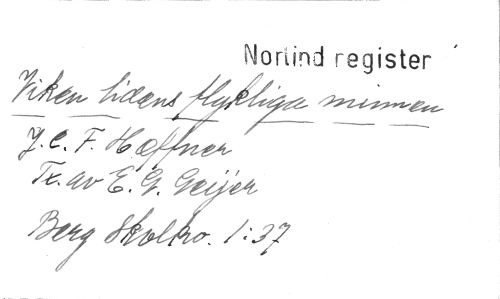 Norlind register
Viken tidens flyktiga minnen
J. C. F. Hæffner
Tx. av E. G. Geijer
Berg Skolkö. 1:37